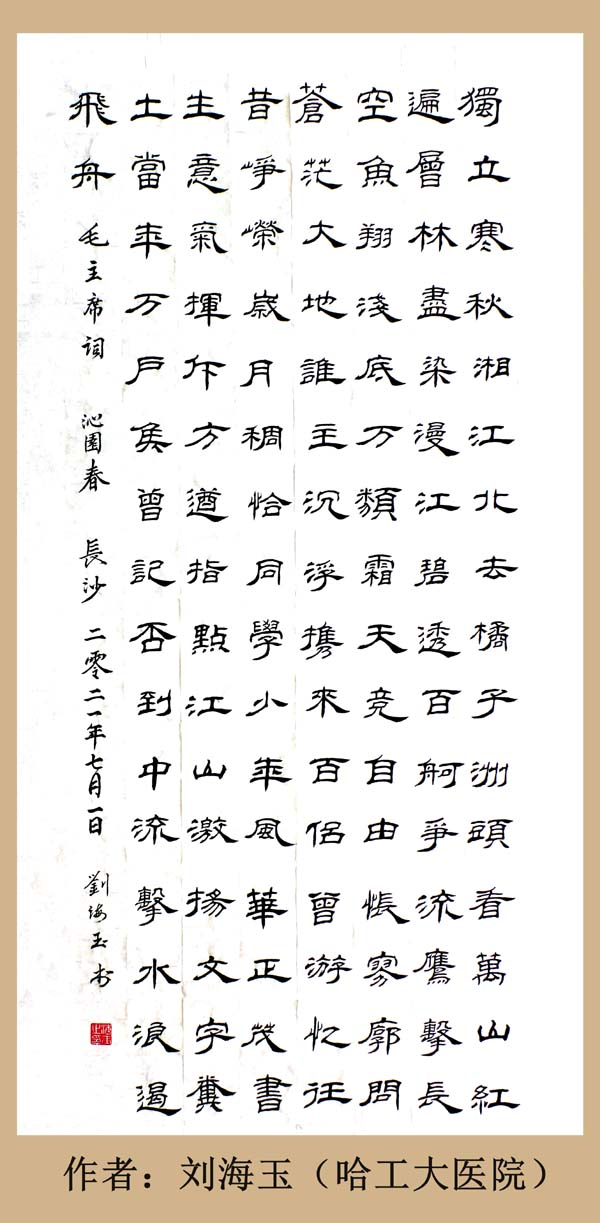 獨立寒秋湘江北去橘子洲頭看萬山紅
遍層林盡染漫江碧透百舸爭流鷹擊長
空魚翔淺底万類霜天竞自由悵寥廓問
蒼茫大地誰主沉浮携來百侣曾游忆往
昔崢嶸歲月稠恰同學少年風華正茂書
生意氣揮斥方遒指點江山激揚文字糞
土當年万户矦曾記否到中流擊水浪遏
飛舟 毛主席词 沁園春 長沙 二零二一年七月一日 劉海玉书
作者：刘海玉（哈工大医院）